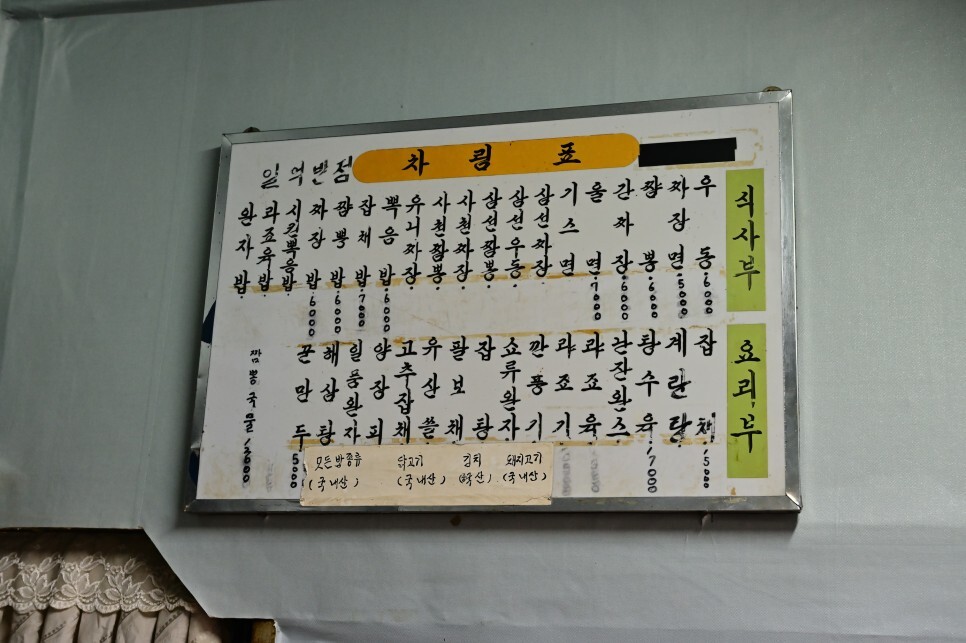 차림표
일억반점
식사부
우동 6000
짜장면 5000
짬뽕 6000
간짜장 6000
울면 7000
기스면
삼선짜장
삼선우동
삼선짬뽕
사천짜장
사천짬뽕
유니짜장
볶음밥 6000
잡채밥 7000
짬뽕밥 6000
짜장밥 6000
시킨볶음밥
과죠육밥
완자밥
요리부
잡채 15000
계란탕
탕수육 17000
난잔완스
라죠육
라죠기
깐풍기
쇼류완자
잡탕
팔보채
유산쓸
고추잡채
양장피
일품완자
해삼탕
꾼만두 5000
짬뽕국물 1000
모든밥종류
(국내산)
닭고기
(국내산)
김치
돼지고기
(국내산)